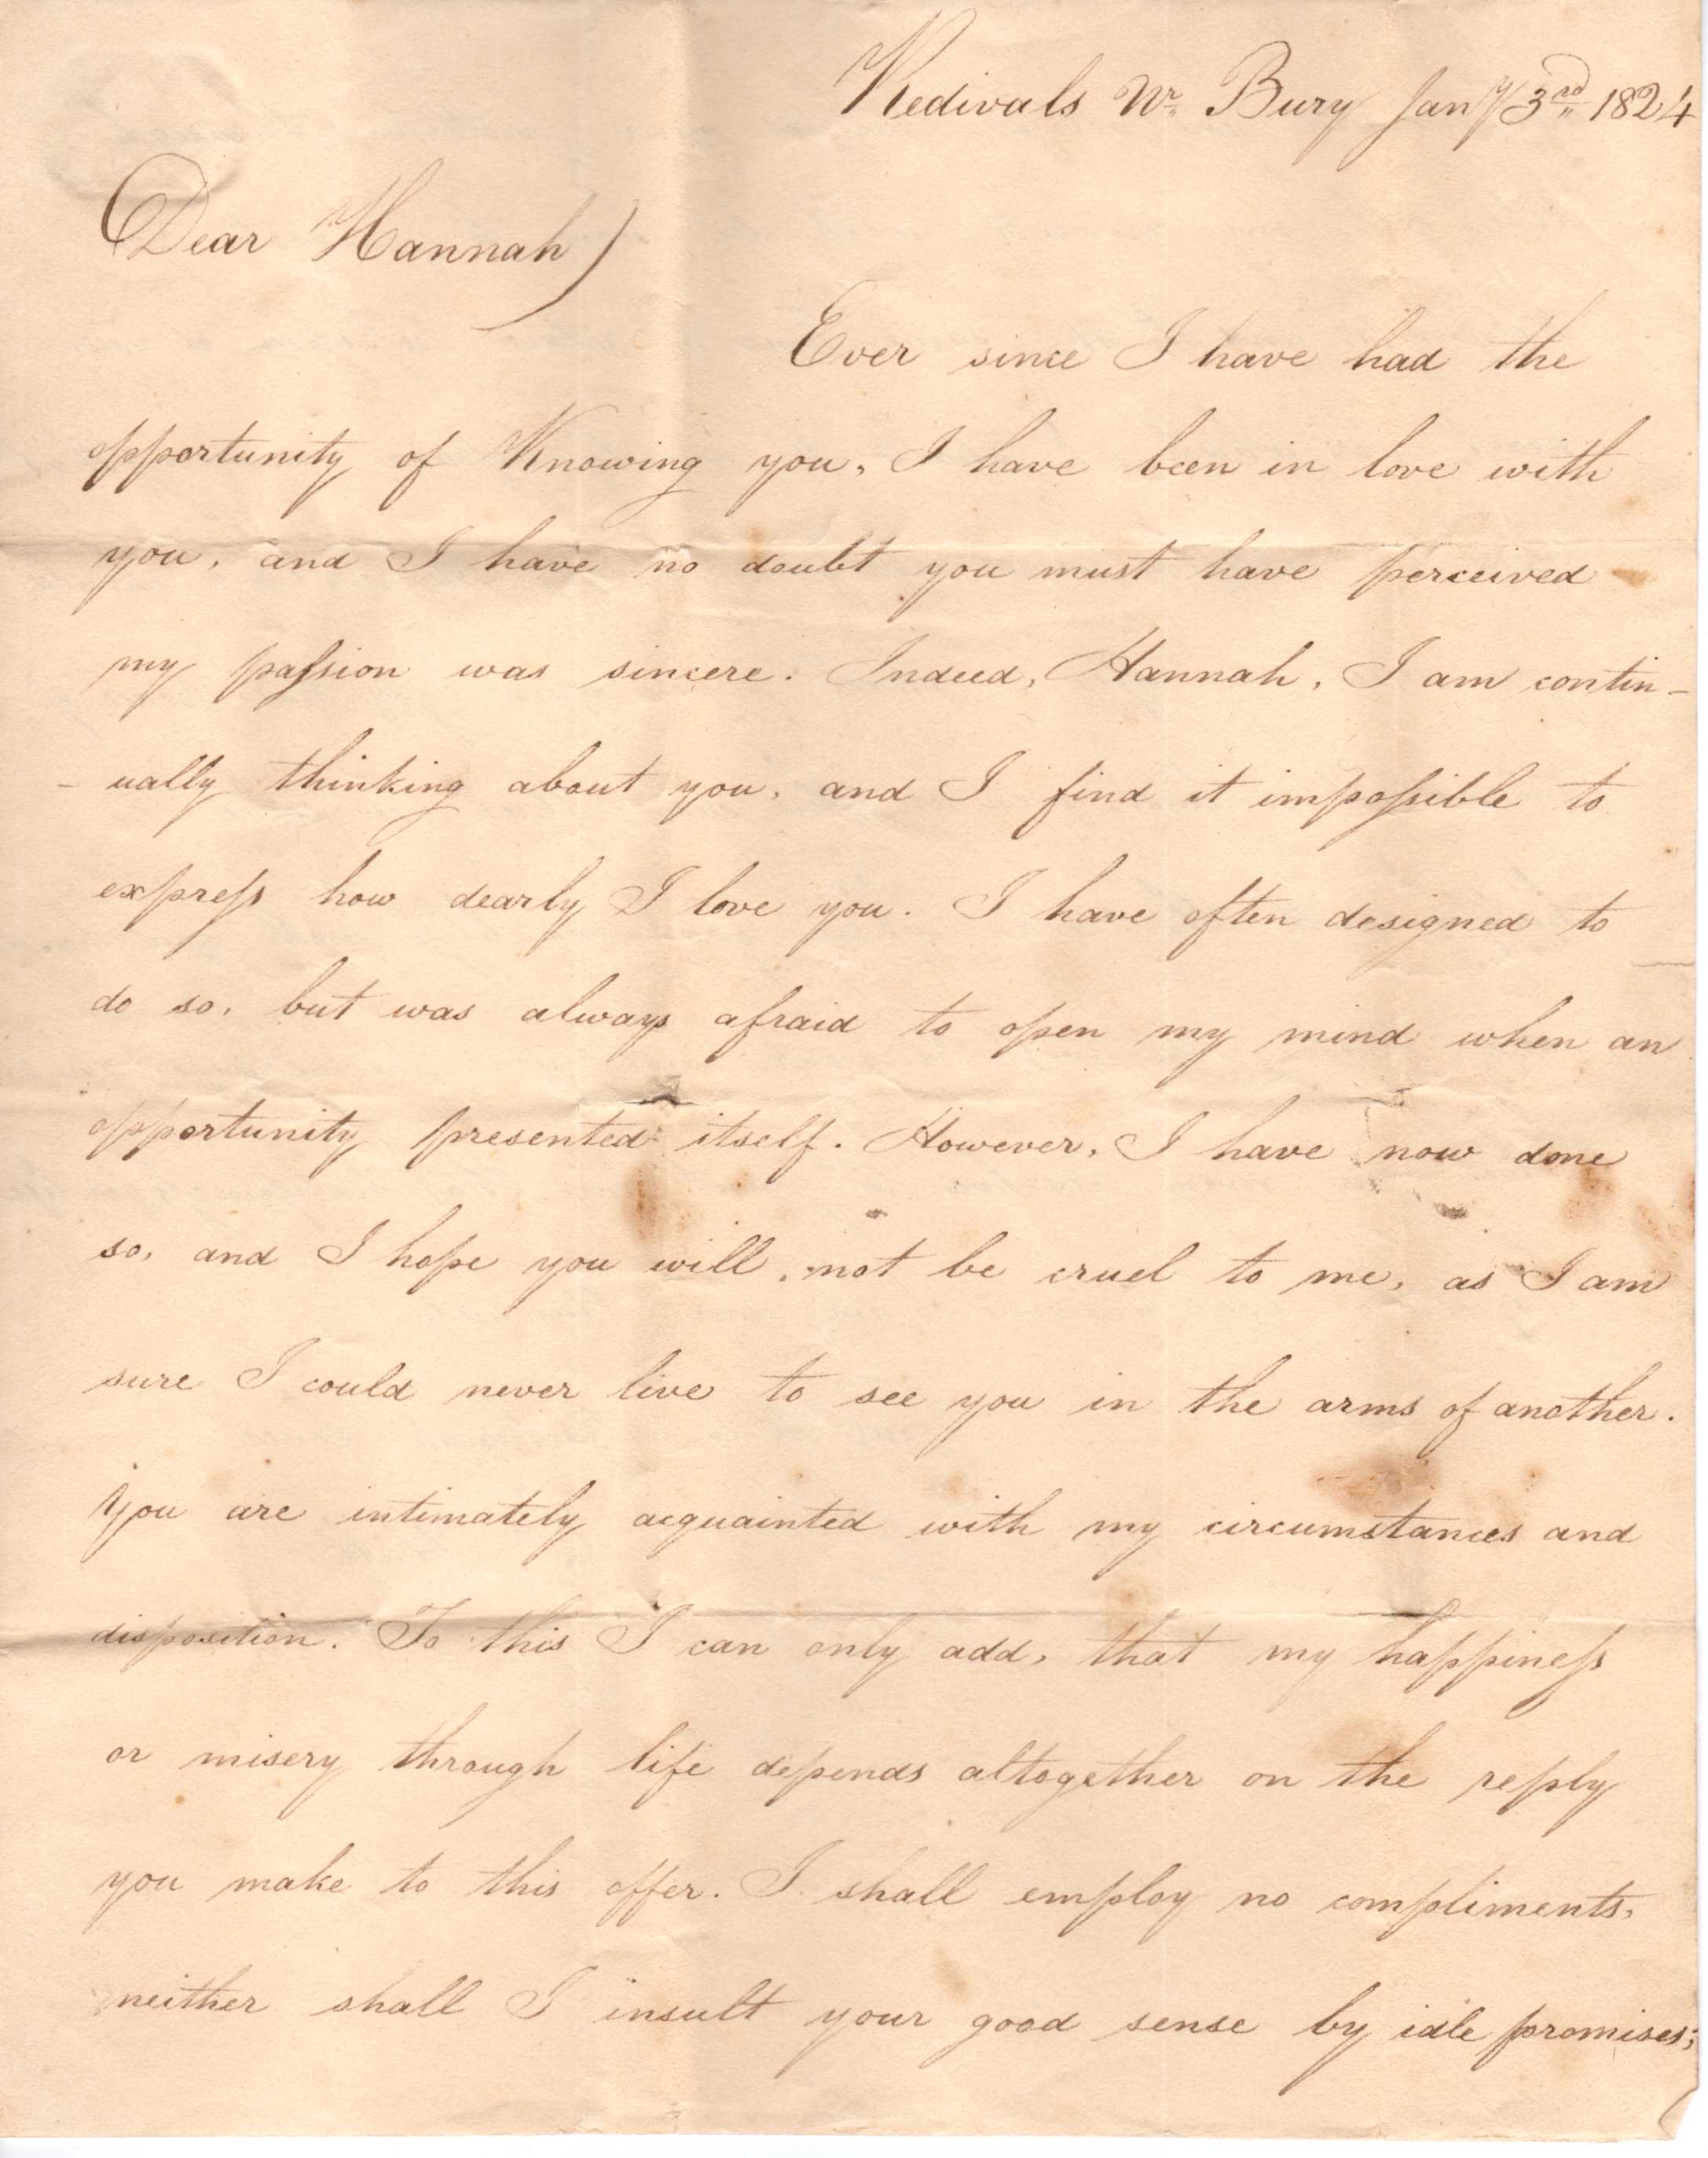 Redivals Nr. Bury Jany 3rd 1824
Dear Hannah)
Ever since I have had the
opportunity of Knowing you, I have been in love with
you, and I have no doubt you must have perceived
my paſsion was sincere. Indeed, Hannah, I am contin-
- ually thinking about you, and I find it impoſsible to
expreſs how dearly I love you. I have often designed to
do so, but was always afraid to open my mind when an
opportunity presented itself. However, I have now done
so, and I hope you will, not be cruel to me, as I am
sure I could never live to see you in the arms of another.
You are intimately acquainted with my circumstances and
disposition. To this I can only add, that my happineſs
or misery through life depends altogether on the reply
you make to this offer. I shall employ no compliments,
neither shall I insult your good sense by idle promises;